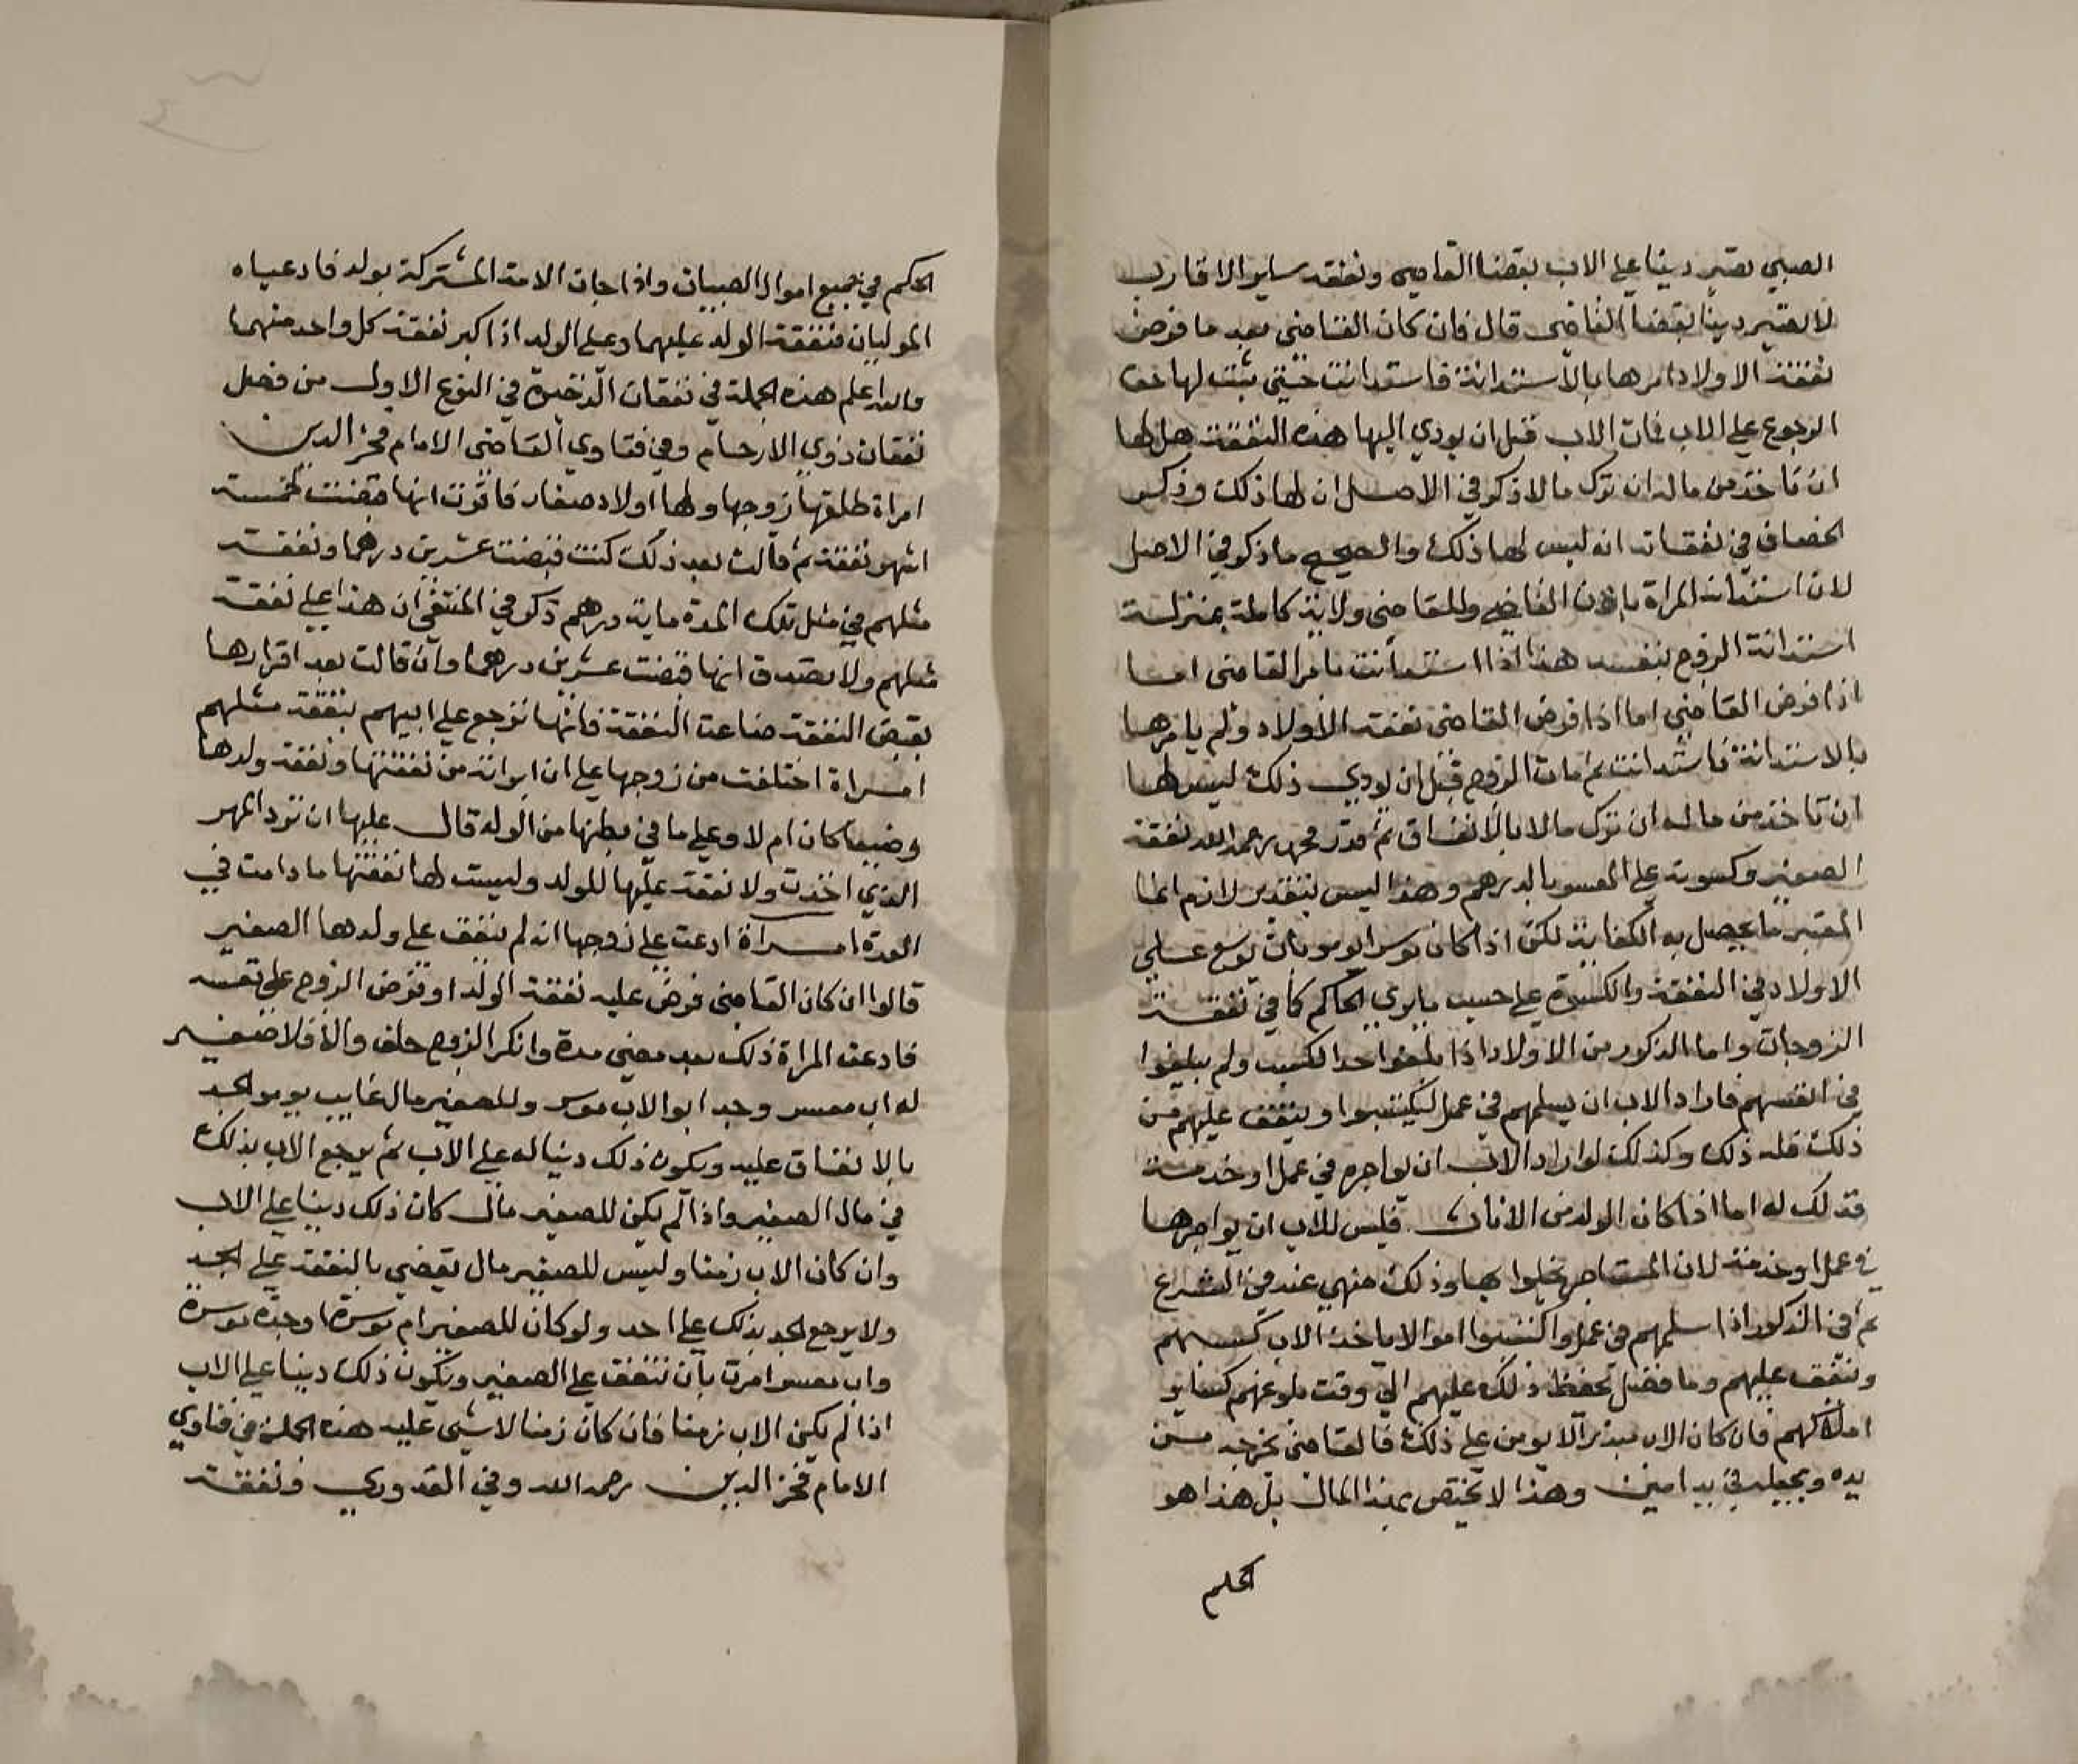 الصبي يصير دينا علي الاب بقضا القاضي ونفقه ساير الاقارب
لا يصير دينا بقضا القاضي قال فان كان القاضي بعد ما فرض
نفقة الاولاد امرها بالاستدانة فاستدانت حتي يثبت لها حق
الرجوع علي الاب فمات الاب قبل ان يودي اليها هذه النفقة هل لها
ان تاخذ من ماله ان ترك مالا ذكر في الاصل ان لها ذلك وذكر
الخصاف في نفقاته انه ليس لها ذلك والصحيح ما ذكر في الاصل
لان استدانة المراة باذن القاضي وللقاضي ولاية كاملة بمنزلة
استدانة الزوج بنفسه هذا اذا استدانت بامر القاضي اما
اذا فرض القاضي اما اذا فرض القاضي نفقة الاولاد ولم يامرها
بالاستدانة فاستدانت ثم مات الزوج قبل ان يودي ذلك ليس لها
ان تاخذ من ماله ان ترك مالا بالانفاق ثم قدر محمد رحمه الله نفقة
الصغير وكسوته علي المعسر بالدرهم وهذا ليس بتقدير لازم انما
المعتبر ما يحصل به الكفاية لكن اذا كان موسرا يومر بان يوسع علي
الاولاد في النفقة والكسوة علي حسب ما يري الحاكم كما في نفقة
الزوجات واما الذكور من الاولاد اذا بلغوا حد الكسب ولم يبلغوا
في انفسهم فاراد الاب ان يسلمهم في عمل ليكتسبوا وينفق عليهم من
ذلك فله ذلك وكذلك لو اراد الاب ان يواجره في عمل او خدمة
فذلك له اما اذا كان الولد من الاناث فليس للاب ان يواجرها
في عمل او خدمة لان المستاجر يخلوا بها وذلك منهي عنه في الشرع
ثم في الذكور اذا سلمهم في عمل واكتسبوا اموالا ياخذ الاب كسبهم
وينفق عليهم وما فضل يحفظ ذلك عليهم الي وقت بلوغهم كساير
املاكهم فان كان الاب مبذرا لا يومن علي ذلك فالقاضي يخرجه من
يده ويجعله في يد امين وهذا لا يختص بهذا المال بل هذا هو
الحكم
الحكم في جميع اموال الصبيان واذا جات الامة المشتركة بولد فادعياه
الموليان فنفقة الولد عليهما وعلي الولد اذا كبر نفقة كل واحد منهما
والله اعلم هذه الجملة في نفقات الذخيرة في النوع الاول من فصل
نفقات ذوي الارحام وفي فتاوي القاضي الامام فخر الدين
امراة طلقها زوجها ولها اولاد صغار فاقرت انها قبضت لخمسة
اشهر نفقة ثم قالت بعد ذلك كنت قبضت عشرين درهما ونفقة
مثلهم في مثل تلك المدة ماية درهم ذكر في المنتقي ان هذا علي نفقة
مثلهم ولا يصدق انها قبضت عشرين درهما وان قالت بعد اقرارها
بقبض النفقة ضاعت النفقة فانها ترجع علي ابيهم بنفقة مثلهم
امراة اختلعت من زوجها علي ان ابراته من نفقتها ونفقة ولدها
رضيعا كان ام لا وعلي ما في بطنها من الولد قال عليها ان ترد المهر
الذي اخذت ولا نفقة عليها للولد وليست لها نفقتها ما دامت في
العدة امراة ادعت علي زوجها انه لم ينفق علي ولدها الصغير
قالوا ان كان القاضي فرض عليه نفقة الولد او فرض الزوج علي نفسه
فادعت المراة ذلك بعد مضي مدة وانكر الزوج حلف والا فلا صغير
له اب معسر وجد ابو الاب موسر وللصغير مال غايب يومر الجد
بالانفاق عليه ويكون ذلك دينا له علي الاب ثم يرجع الاب بذلك
في مال الصغير واذا لم يكن للصغير مال كان ذلك دينا علي الاب
وان كان الاب زمنا وليس للصغير مال يقضي بالنفقة علي الجد
ولا يرجع الجد بذلك علي احد ولو كان للصغير ام موسرة او جدة موسرة
واب معسر امرت بان تنفق علي الصغير ويكون ذلك دينا علي الاب
اذا لم يكن الاب زمنا فان كان زمنا لا شي عليه هذه الجملة في فتاوي
الامام فخر الدين رحمه الله وفي القدوري ونفقة